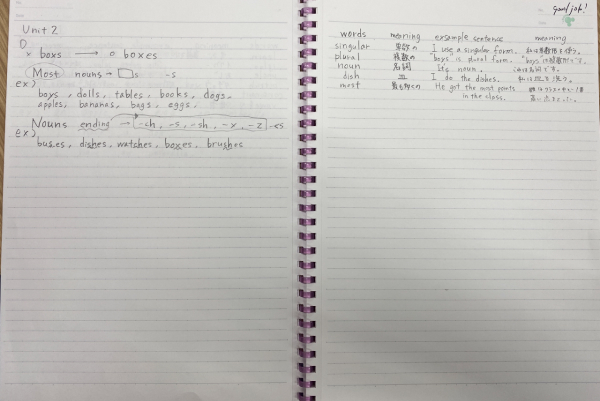 Unit 2
①.
× boxs → ○ boxes
Most nouns → □s -s
ex)
boys, dolls, tables, books, dogs,
apples, bananas, bags, eggs.
Nouns ending → -ch, -s, -sh, -x, -z -es
ex)
buses, dishes, watches, boxes, brushes
good job!
words meaning example sentence meaning
singular 単数の I use a singular form. 私は単数形を使う。
plural 複数の "boys" is plural form. "boys"は複数形です。
noun 名詞 It's noun. 名詞です。
dish 皿 I do the dishes. 私は皿を洗う。
most 最も多くの He got the most points
in the class.